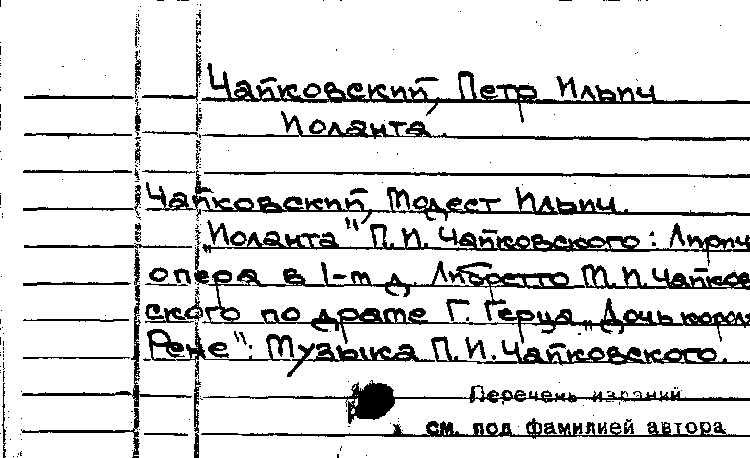 Чайковский, Петр Ильич
Иоланта.
Чайковский, Модест Ильич.
„Иоланта" П.И. Чайковского: Лирич
опера в 1-м д. Либретто М.И. Чайков
ского по драме Г. Герца „Дочь короля
Рене": Музыка П.И. Чайковского.
Перечень изданий
см. под фамилией автора